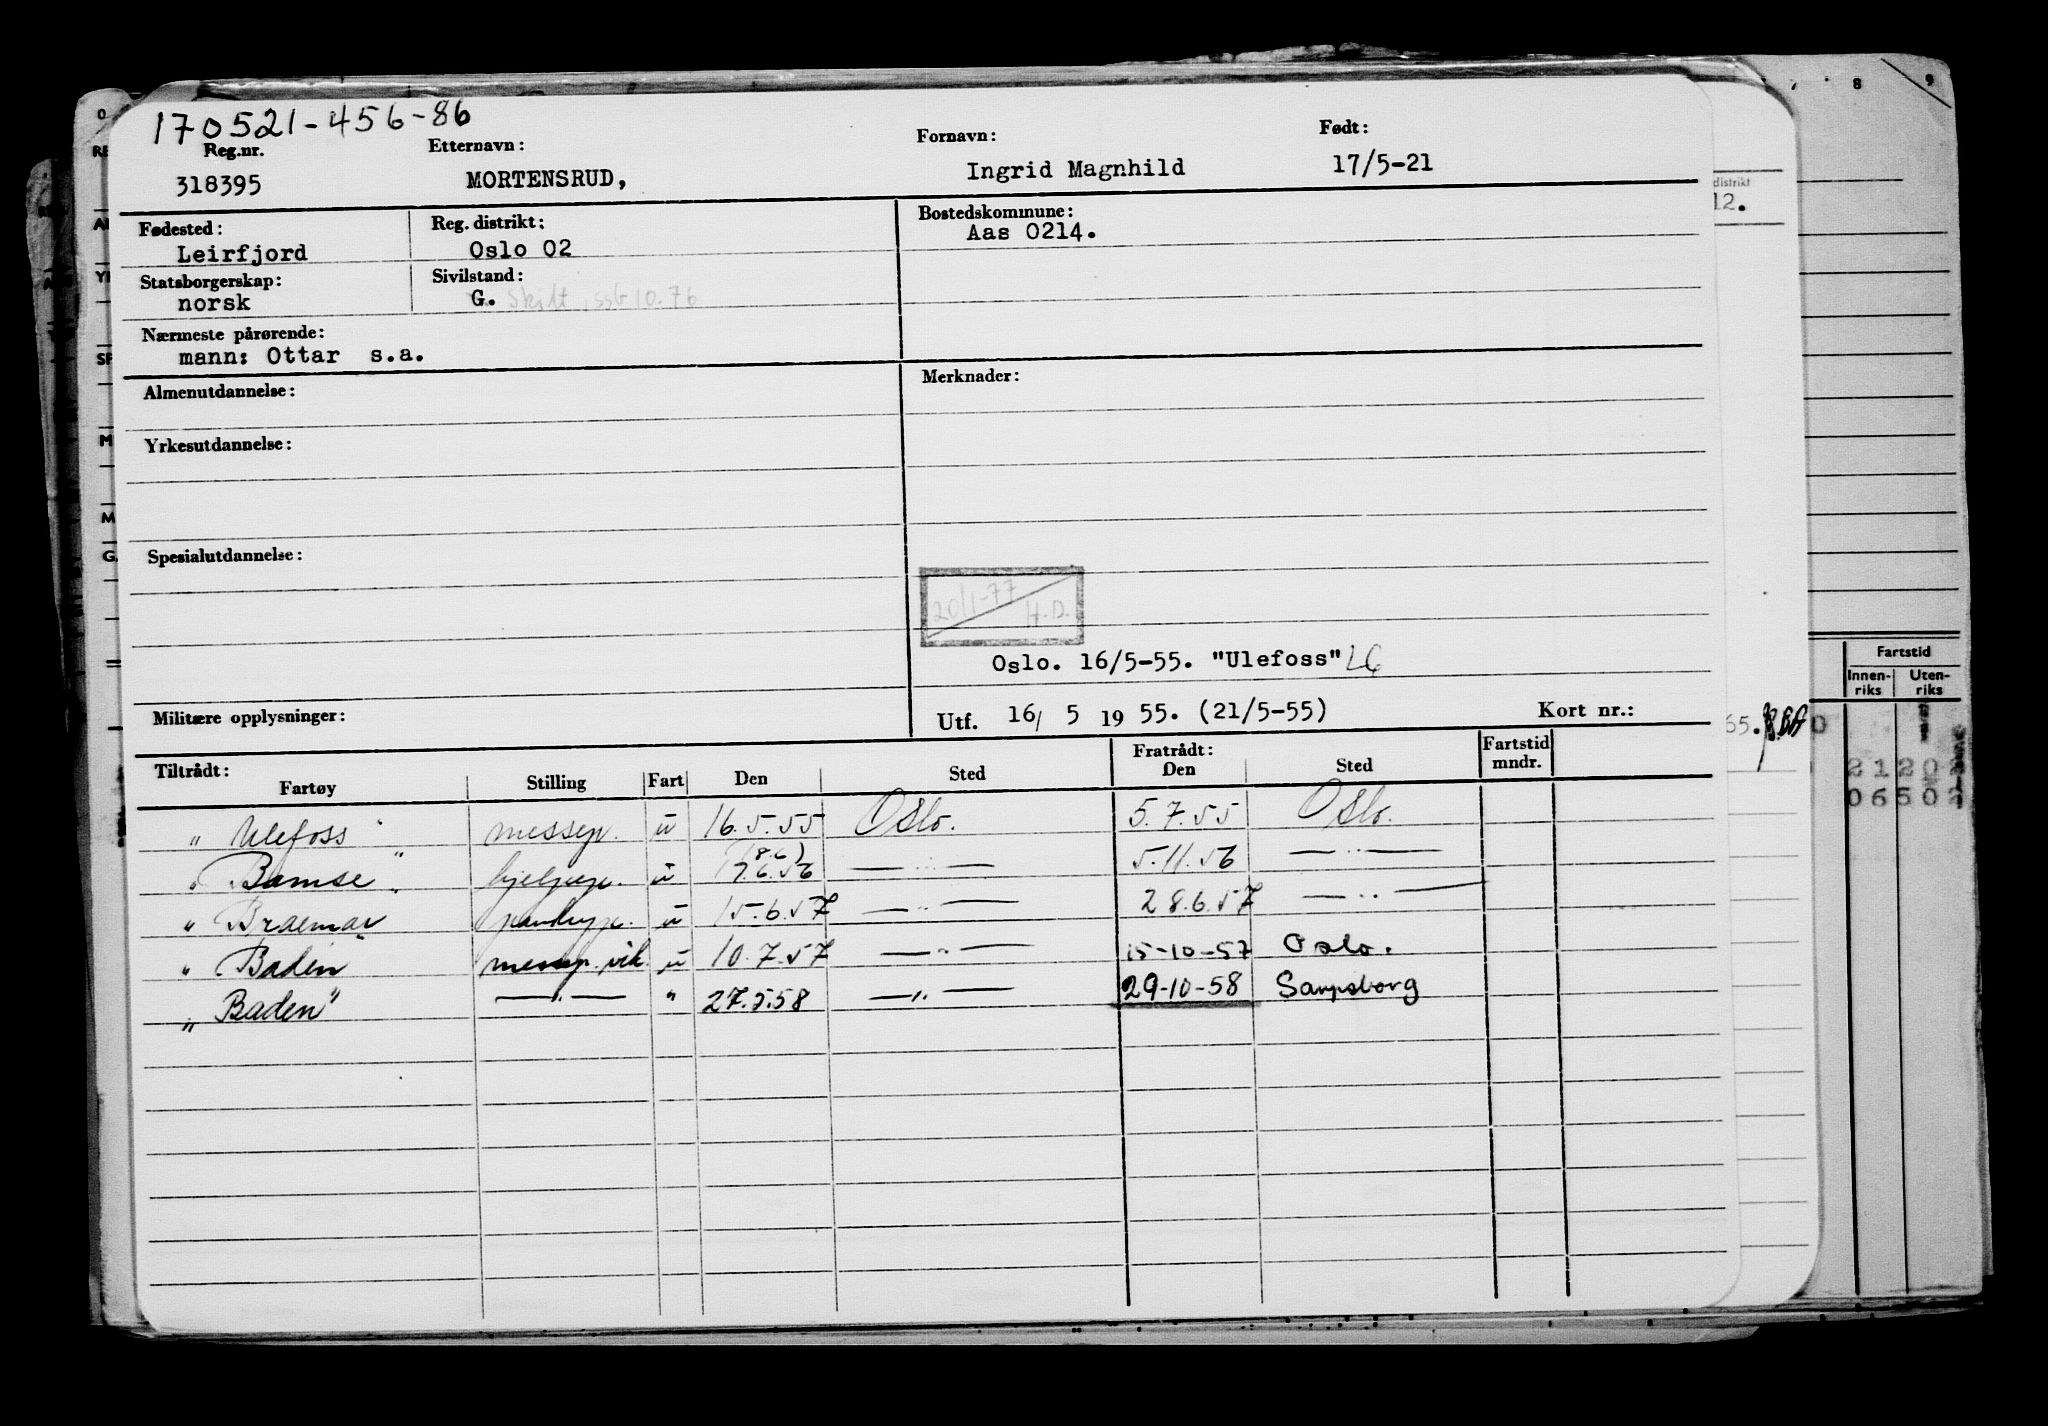 170521-456-86
Reg.nr. Etternavn: Fornavn: Født:
318395 MORTENSRUD, Ingrid Magnhild 17/5-21
Fødested: Reg. distrikt: Bostedskommune:
Leirfjord Oslo 02 Aas 0214.
Statsborgerskap: Sivilstand:
norsk G. Skilt, ssb 10.76
Nærmeste pårørende:
mann: Ottar s.a.
Almenutdannelse: Merknader:
Yrkesutdannelse:
Spesialutdannelse:
20/1-77 H.D.
Oslo. 16/5-55. "Ulefoss"
Militære opplysninger: Utf. 16/ 5 19 55. (21/5-55) Kort nr.:
Tiltrådt: Fratrådt: Fartstid
Fartøy Stilling Fart Den Sted Den Sted mndr.
"Ulefoss" messep. u 16.5.55 Oslo. 5.7.55 Oslo.
(8.6)
"Bamse" hjelpep. u 7.6.56 — " — 5.11.56 — " —
"Braemar" pantryp. u 15.6.57 — " — 28.6.57 — " —
"Baden" messep. vik. u 10.7.57 — " — 15-10-57 Oslo.
"Baden" — " — " 27.5.58 — " — 29-10-58 Sarpsborg
8 9
distrikt
12.
Fartstid
Innen- Uten-
riks riks
65.
2120
06502